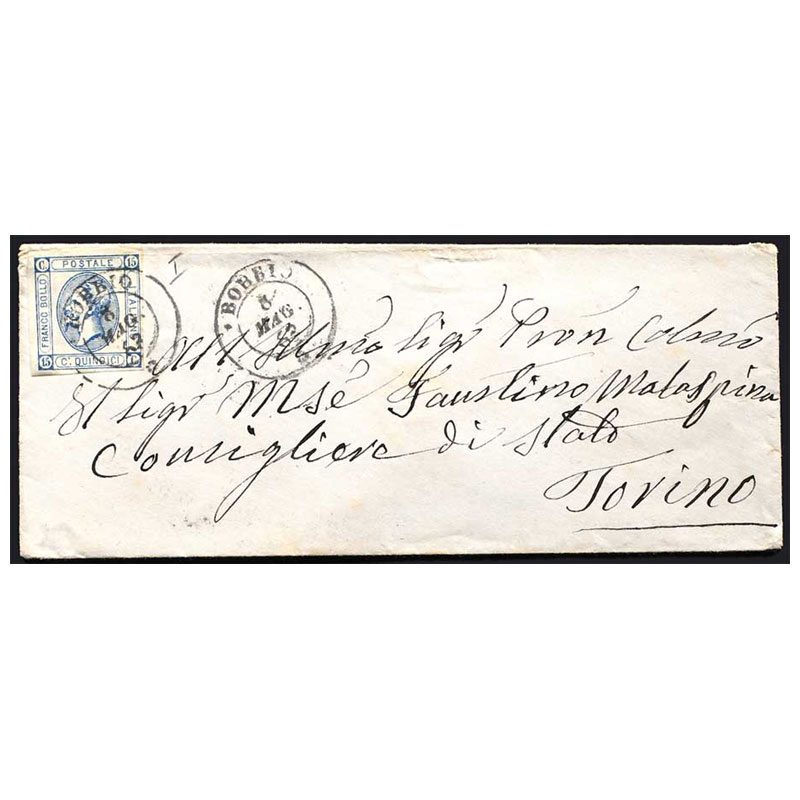 C. POSTALE 15
FRANCO BOLLO
15 C. QUINDICI C.
BOBBIO
6
MAG.
63
BOBBIO
6
MAG.
63
All Illmo Sigr Pron Colmo
Il Sigr Mse Faustino Malaspina
Consigliere di Stato
Torino